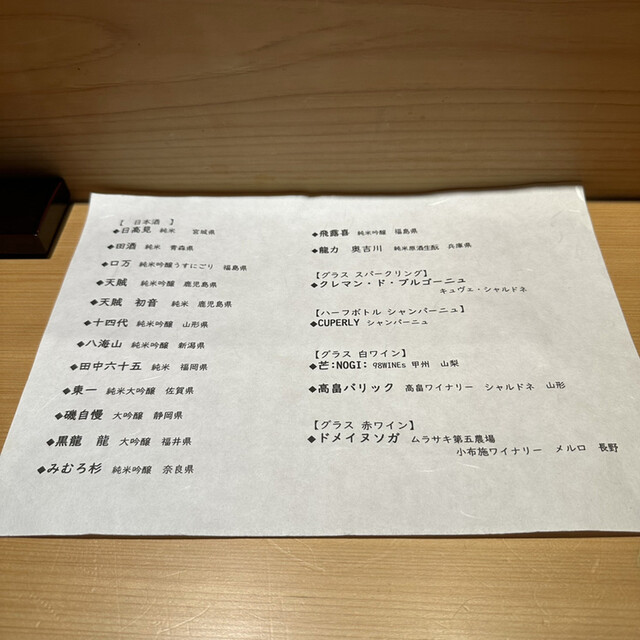 【 日本酒 】
◆日高見 純米 宮城県
◆田酒 純米 青森県
◆口万 純米吟醸うすにごり 福島県
◆天賊 純米吟醸 鹿児島県
◆天賊 初音 純米 鹿児島県
◆十四代 純米吟醸 山形県
◆八海山 純米吟醸 新潟県
◆田中六十五 純米 福岡県
◆東一 純米大吟醸 佐賀県
◆磯自慢 大吟醸 静岡県
◆黒龍 龍 大吟醸 福井県
◆みむろ杉 純米吟醸 奈良県
◆飛露喜 純米吟醸 福島県
◆龍力 奥吉川 純米原酒生酛 兵庫県
【グラス スパークリング】
◆クレマン・ド・ブルゴーニュ
キュヴェ・シャルドネ
【ハーフボトル シャンパーニュ】
◆CUPERLY シャンパーニュ
【グラス 白ワイン】
◆芒:NOGI: 98WINEs 甲州 山梨
◆高畠バリック 高畠ワイナリー シャルドネ 山形
【グラス 赤ワイン】
◆ドメイヌソガ ムラサキ第五農場
小布施ワイナリー メルロ 長野